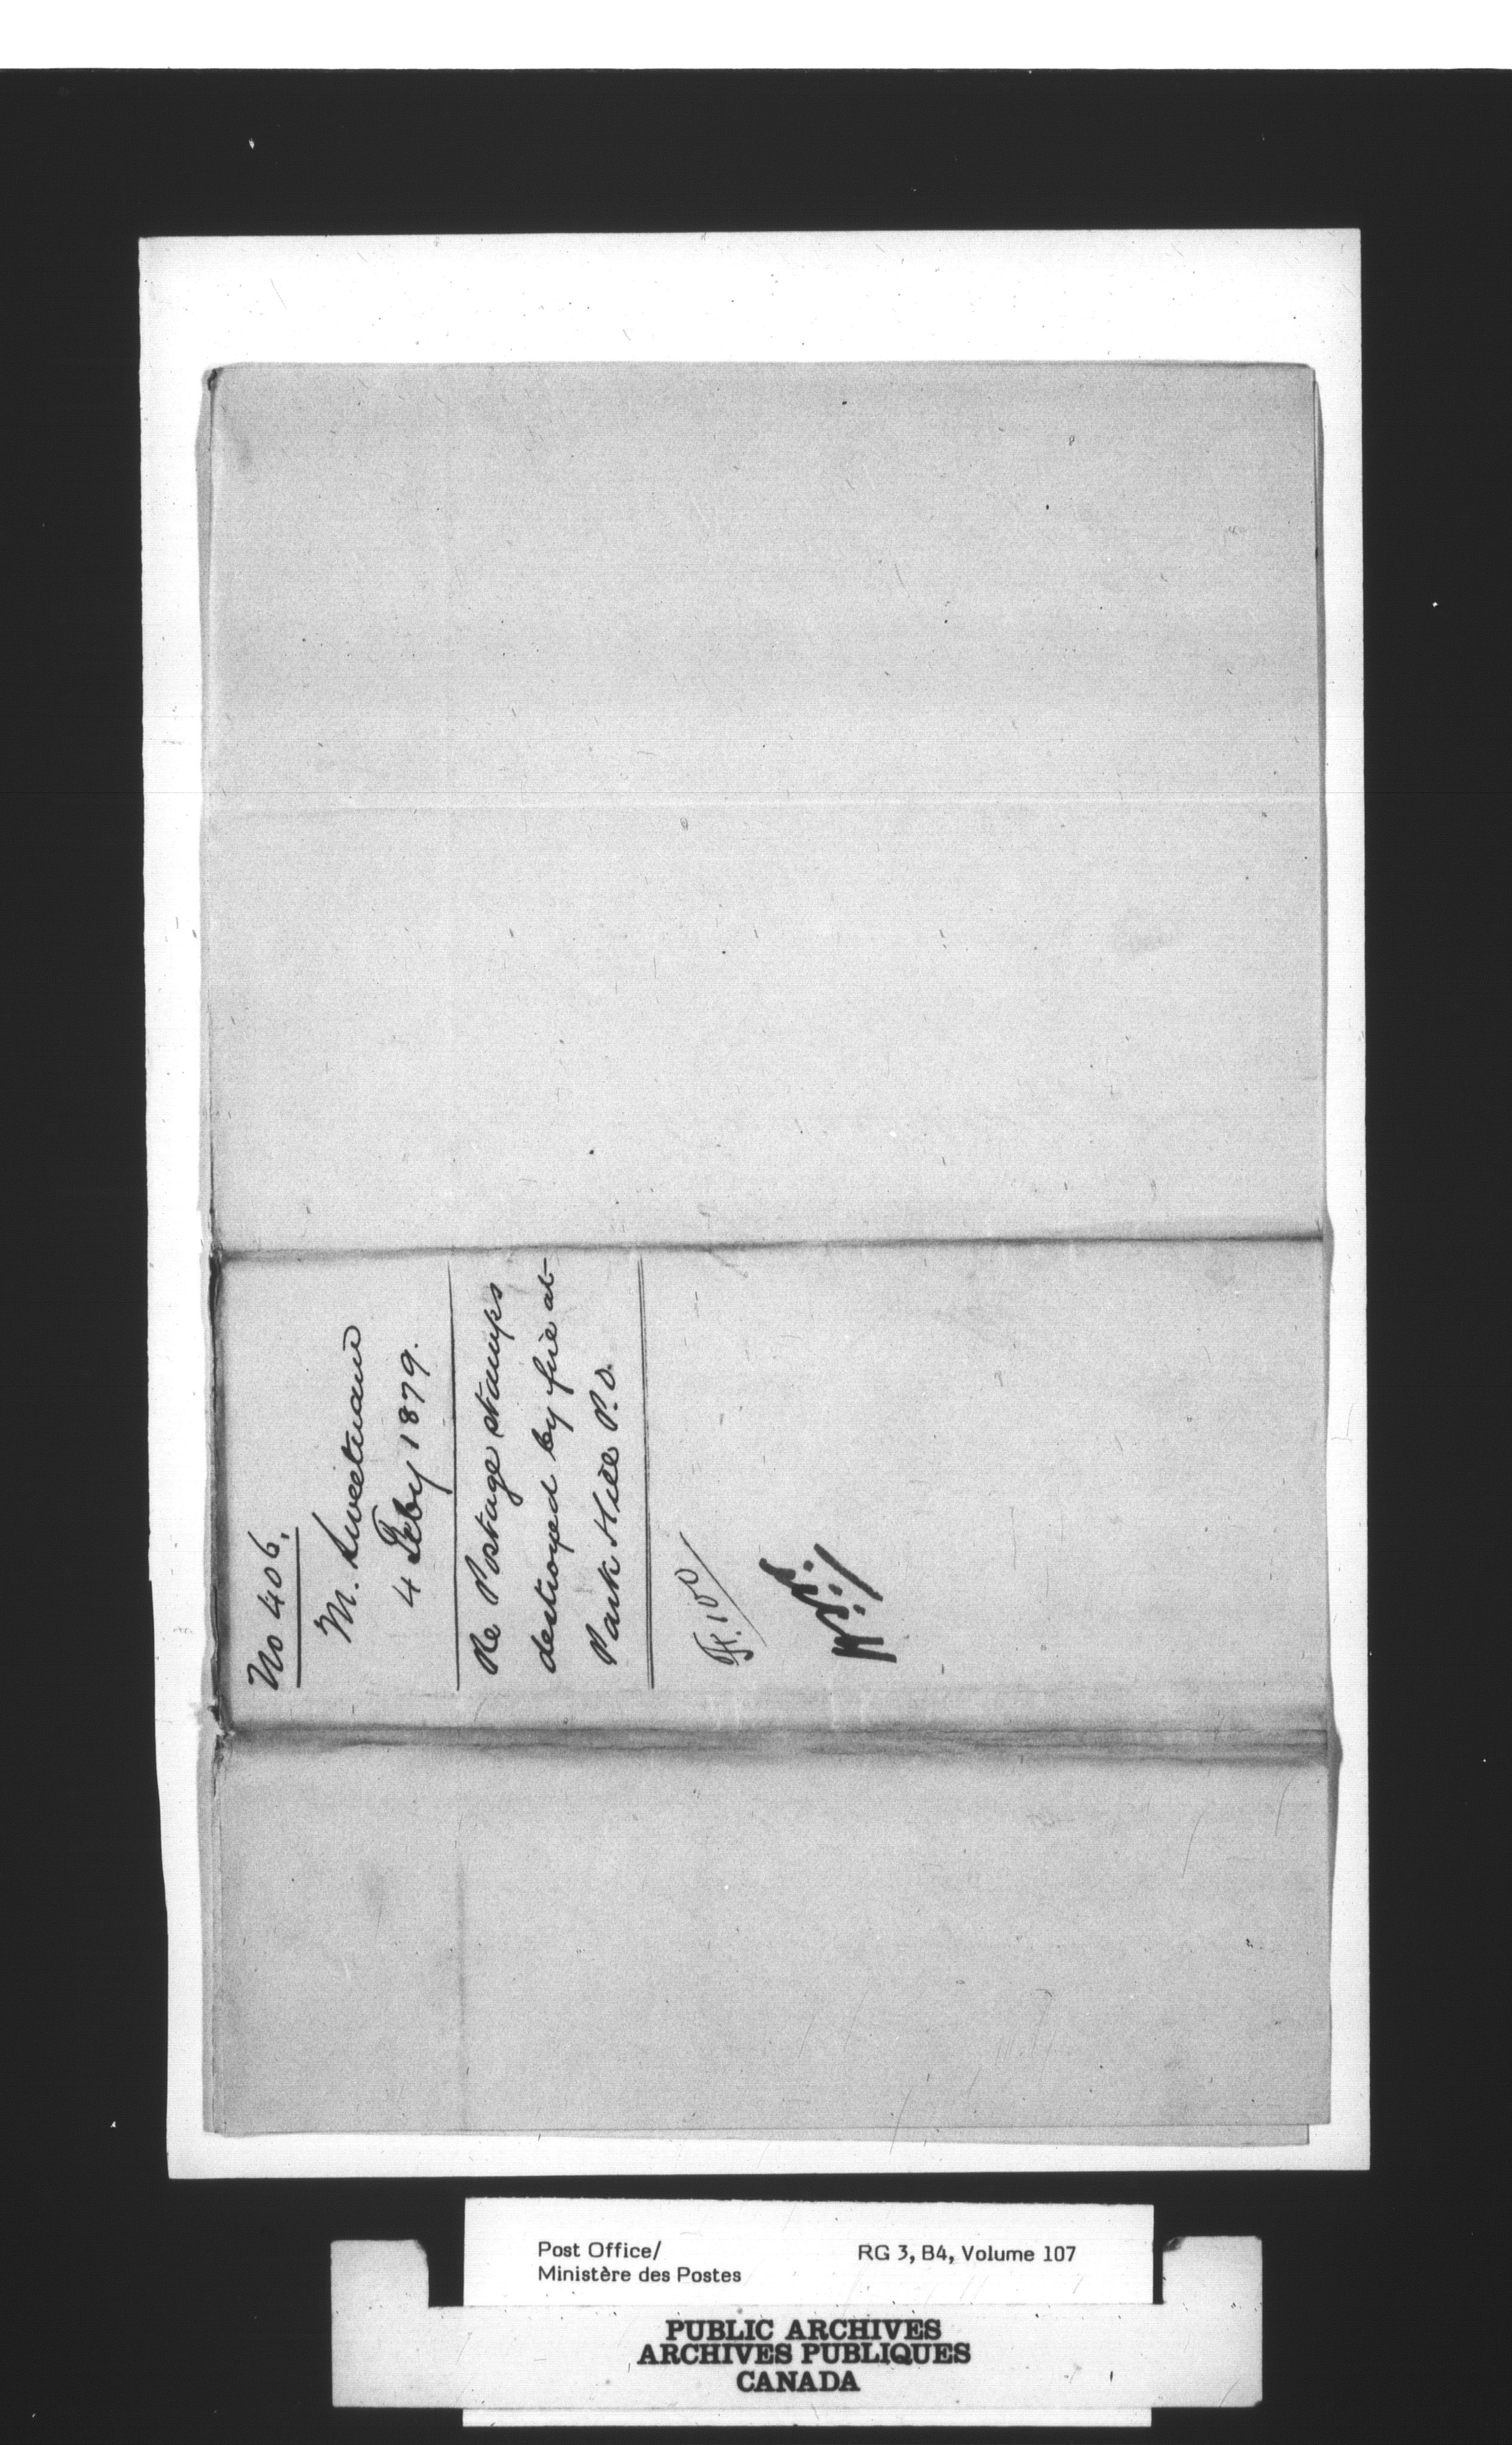 No 406.
M. Sweetnam
4 Feby 1879.
Re Postage stamps
destroyed by fire at
Park Hill P.O.
Post Office/
Ministère des Postes
RG 3, B4, Volume 107
PUBLIC ARCHIVES
ARCHIVES PUBLIQUES
CANADA